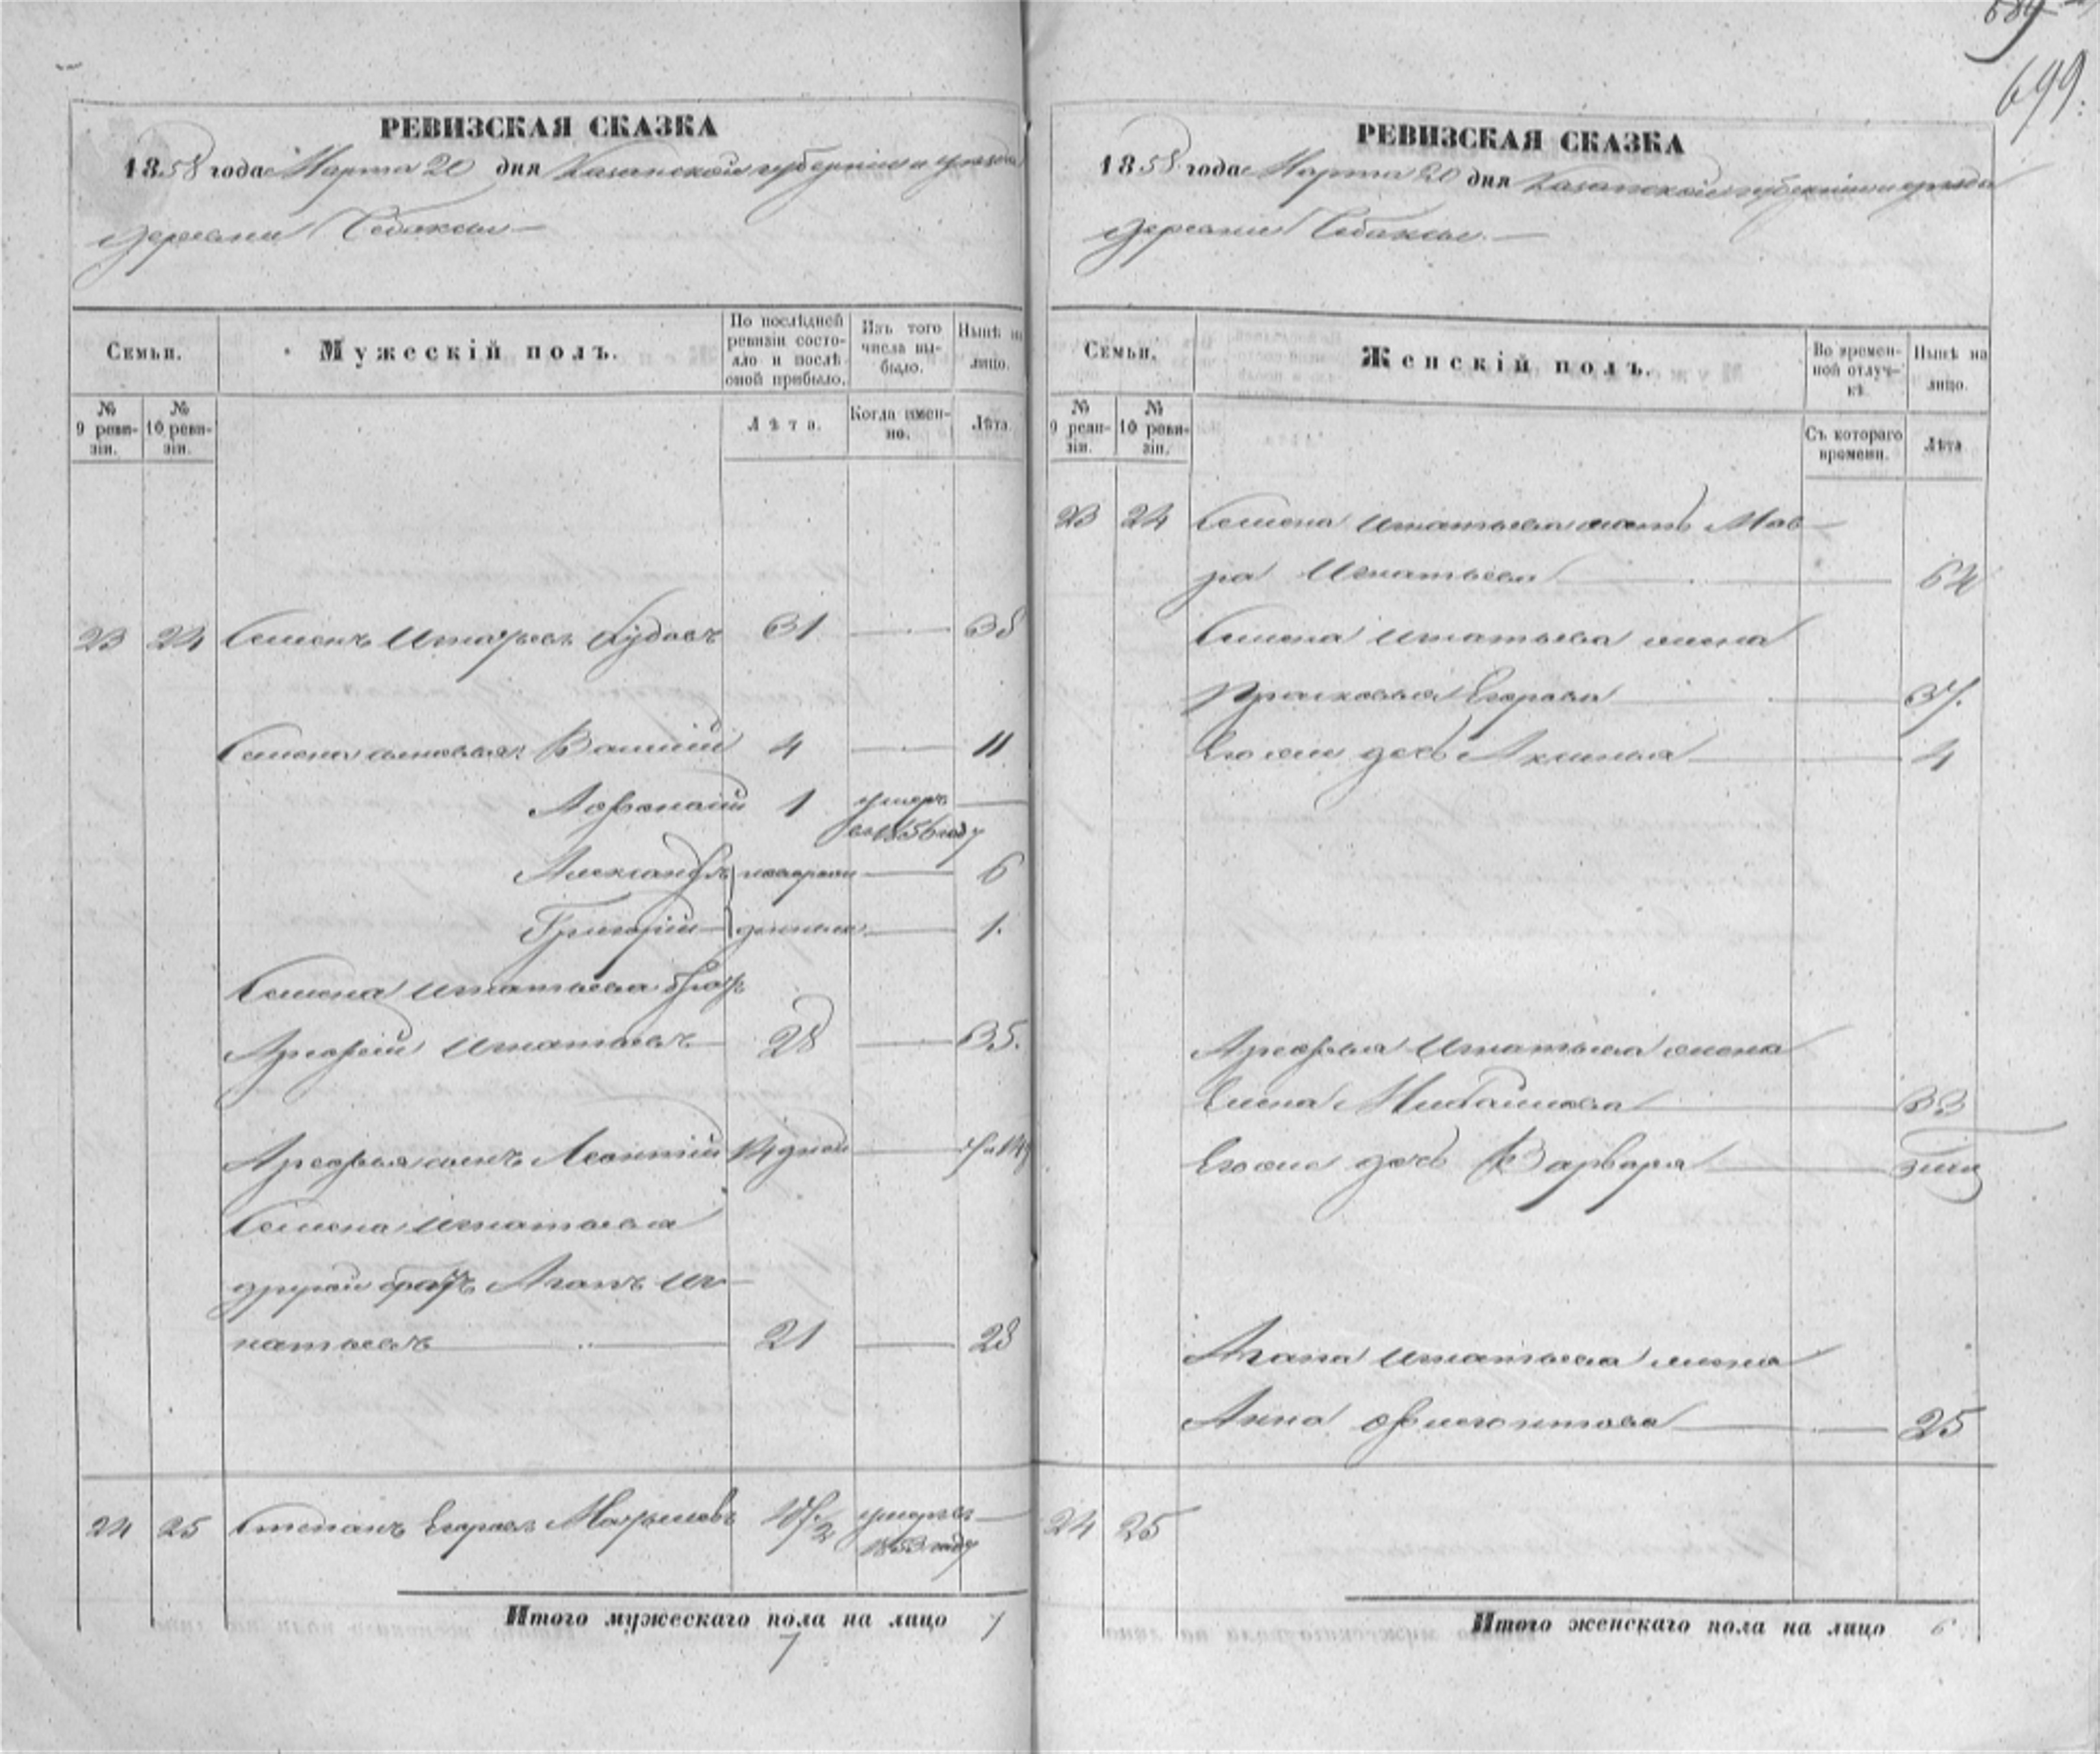 699.
РЕВИЗСКАЯ СКАЗКА
1858 года Марта 20 дня Казанской губернии и уезда
деревни
Семьи.
Мужескій полъ.
По послѣдней ревизіи состояло и послѣ оной прибыло.
Изъ того числа выбыло.
Нынѣ на лицо.
№ 9 ревизіи.
№ 10 ревизіи.
Лѣта.
Когда именно.
Лѣта.
23 24 Семенъ Игнатьевъ 31 38
Семена сыновья 4 11
Афонасій 1 умеръ в 1856 году
Александръ после ревизии 6
Григорій рождены 1.
Семена Игнатьева братъ
Арефій Игнатьевъ 28 35.
Арефья сынъ Леонтій 14 дней
Семена Игнатьева
другой братъ Агапъ Иг-
натьевъ 21 28
24 25 Степанъ Егоровъ умеръ в 1853 году
Итого мужескаго пола на лицо 7
7
РЕВИЗСКАЯ СКАЗКА
1858 года Марта 20 дня Казанской губернии и уезда
деревни
Семьи.
Женскій полъ.
Во временной отлучкѣ.
Нынѣ на лицо.
№ 9 ревизіи.
№ 10 ревизіи.
Съ котораго времени.
Лѣта
23 24 Семена Игнатьева мать Мав-
ра Игнатьева 64
Семена Игнатьева жена
Прасковья Егорова 37.
Его же дочь Аксинья 4
Арефья Игнатьева жена
Елена 33
Его же дочь Варвара
Агапа Игнатьева жена
Анна 25
24 25
Итого женскаго пола на лицо 6